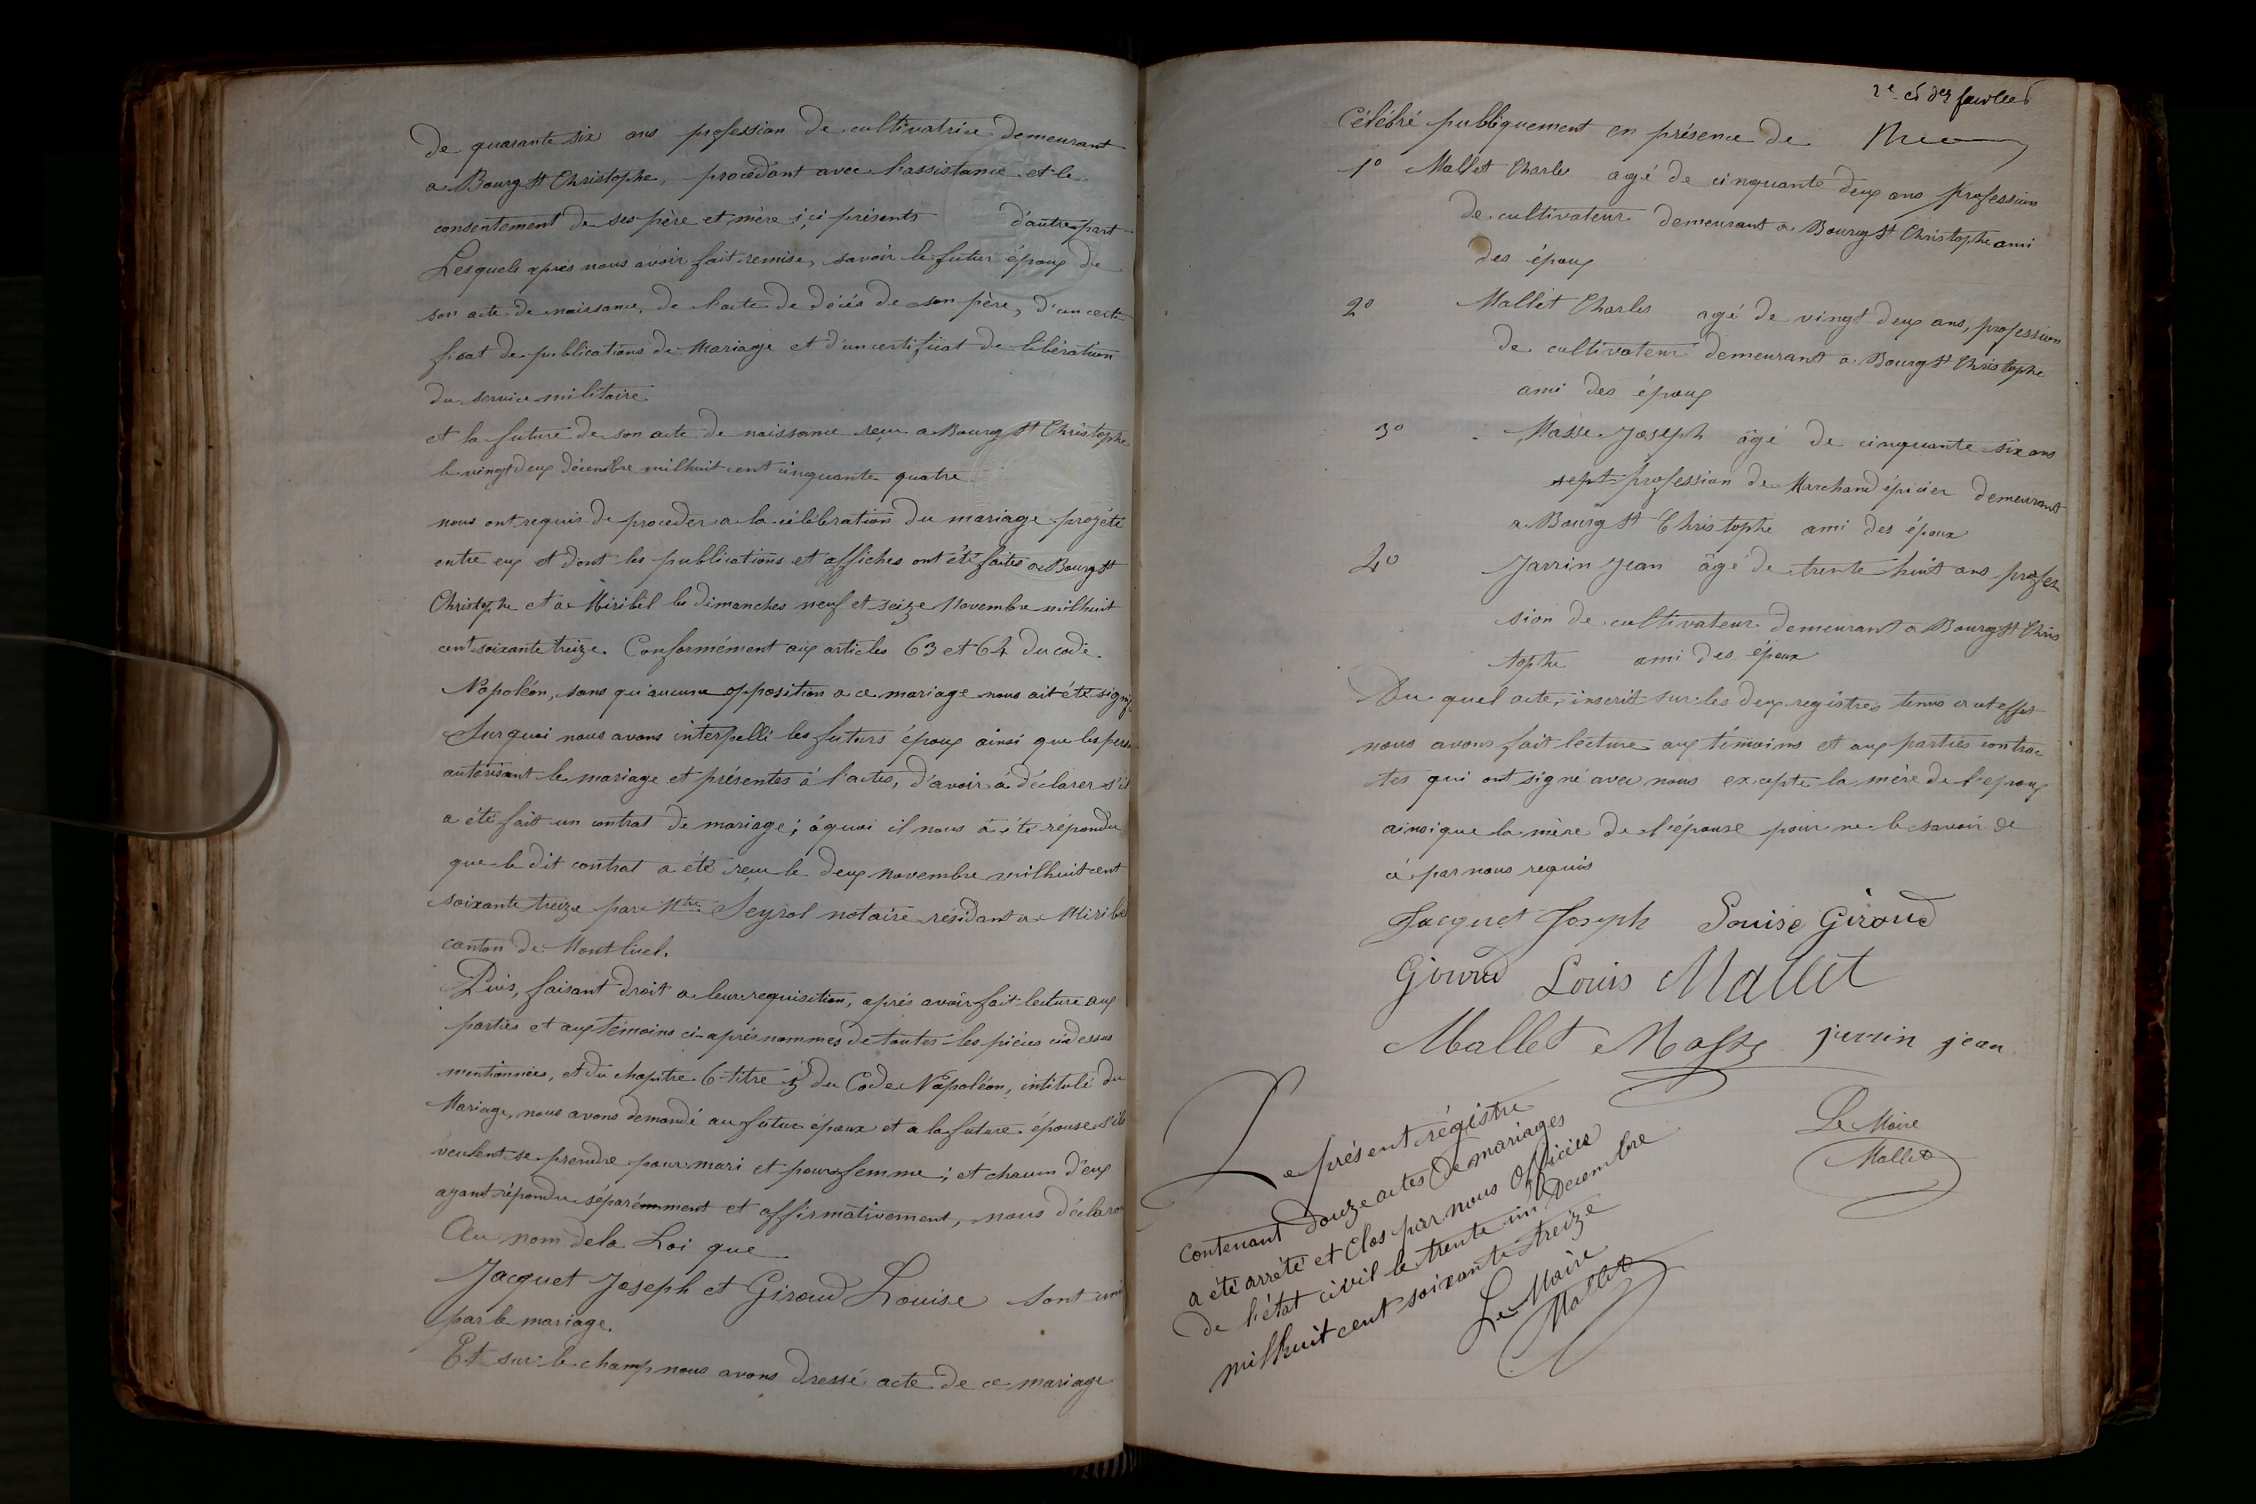 de quarante six ans profession de cultivatrice demeurant
a Bourg St Christophe, procédant avec l'assistance et le
consentement de ses père et mère ici présents d'autre part
Lesquels après nous avoir fait remise, savoir le futur époux de
son acte de naissance, de l'acte de décés de son père, d'un certi
ficat de publications de Mariage et d'un certificat de libération
du service militaire
et la future de son acte de naissance reçu a Bourg St Christophe
le vingt deux décembre mil huit cent cinquante quatre
nous ont requis de proceder a la célébration du mariage projété
entre eux et dont les publications et affiches ont été faites a Bourg St
Christophe et a Miribel les dimanches neuf et seize Novembre mil huit
cent soixante treize. Conformément aux articles 63 et 64 du code
Napoléon, sans qu'aucune opposition a ce mariage nous ait été signif
Sur quoi nous avons interpellé les futurs époux ainsi que les pers
autorisant le mariage et présentes à l'actes, d'avoir à déclarer s'il
a été fait un contrat de mariage; à quoi il nous à été répondu
que le dit contrat a été reçu le deux novembre mil huit cent
soixante treize par Mtre Seyrol notaire résidant a Miribel
canton de Montluel.
Puis, faisant droit a leur requisition, après avoir fait lecture aux
parties et aux témoins ci-après nommés de toutes les pièces ci dessus
mentionnées, et du chapitre 6 titre 5 du Code Napoléon, intitulé du
Mariage, nous avons demandé au futur époux et a la future épouse s'ils
veulent se prendre pour mari et pour femme; et chacun d'eux
ayant répondu séparémment et affirmativement, nous déclarons
Au nom de la Loi que
Jacquet Joseph et Giroud Louise sont unis
par le mariage.
Et sur le champ nous avons dressé acte de ce mariage
2e et der feuillet
Célébré publiquement en présence de
1o Mallet Charles agé de cinquante deux ans profession
de cultivateur demeurant a Bourg St Christophe ami
des époux
2o Mallet Charles agé de vingt deux ans, profession
de cultivateur demeurant a Bourg St Christophe
ami des époux
3o Masse Joseph âgé de cinquante six ans
sept profession de Marchand épicier demeurant
a Bourg St Christophe ami des époux
4o Jarrin Jean âgé de trente huit ans profes
sion de cultivateur demeurant a Bourg St Chris
tophe ami des époux
Du quel acte, inscrit sur les deux registres tenus a cet effet
nous avons fait lecture aux témoins et aux parties contrac
tes qui ont signé avec nous excepté la mère de l'époux
ainsi que la mère de l'épouse pour ne le savoir de
ce par nous requis
Jacquet Joseph Louise Giroud
Giroud Louis Mallet
Mallet Masse jarrin jean
Le Maire
Mallet
Le présent régistre
contenant douze actes de mariages
a été arrété et Clos par nous Officier
de l'état civil le trente un Décembre
mil huit cent soixante treize
Le Maire
Mallet